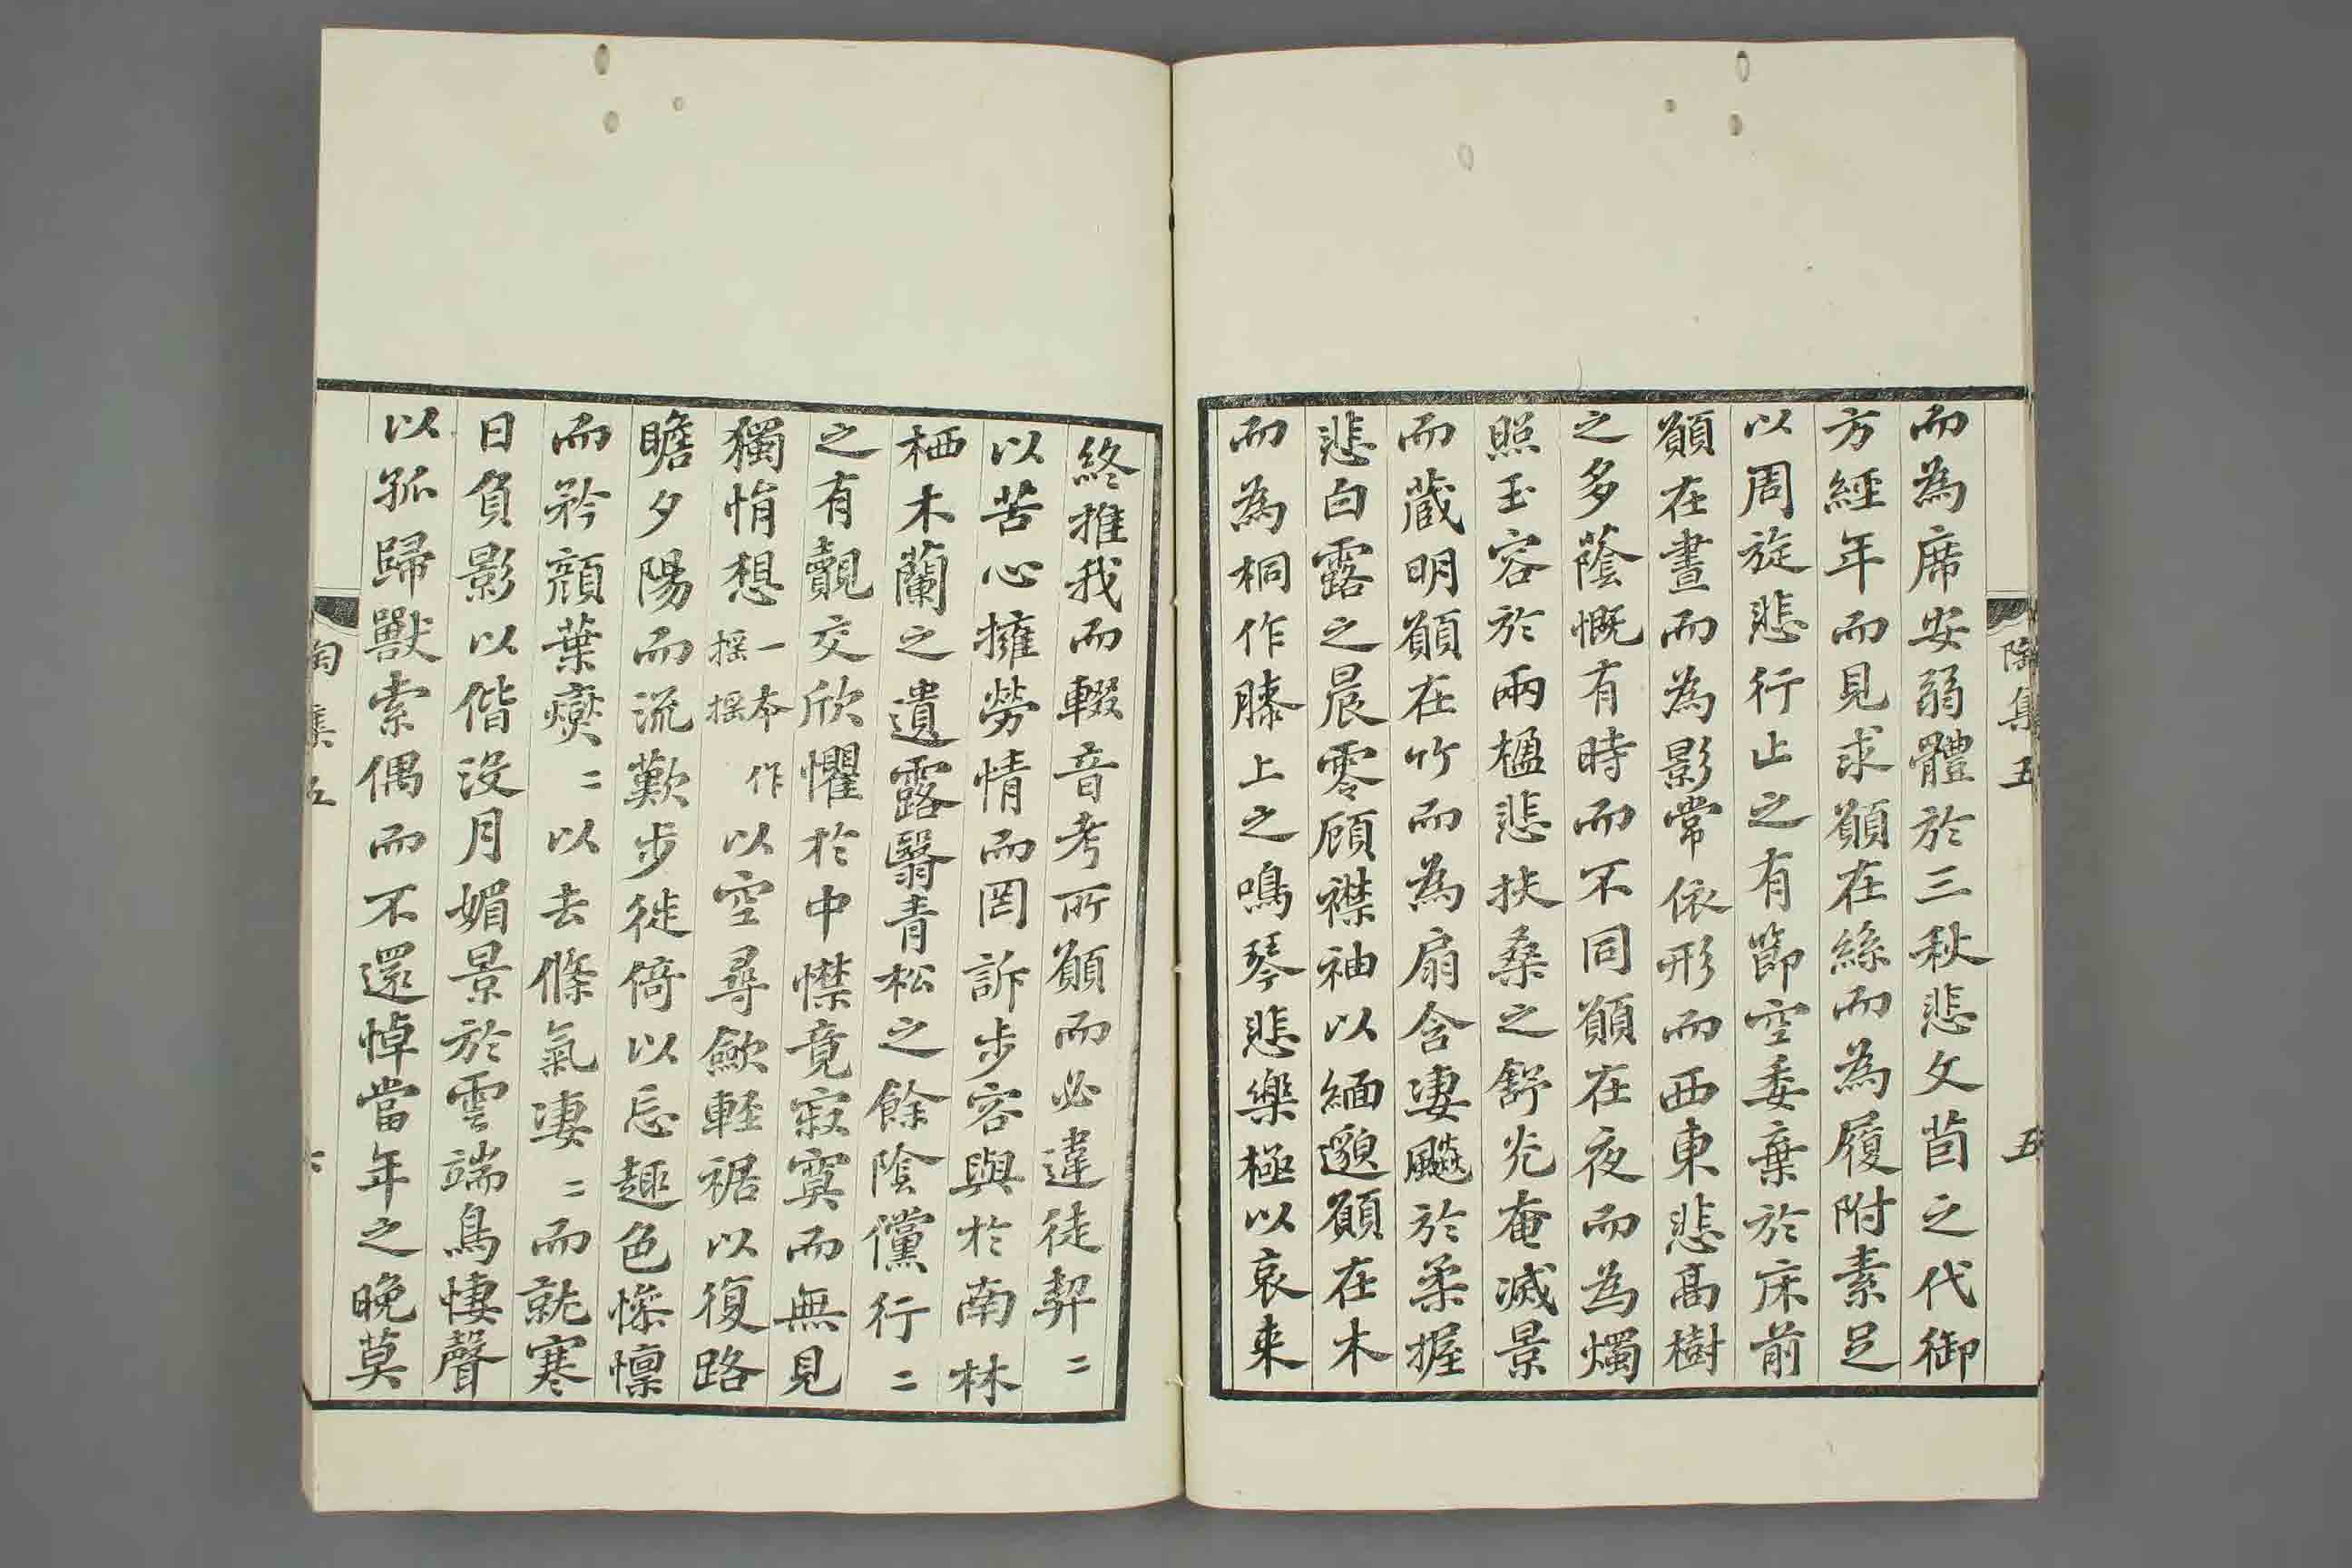 陶集五
五
而為席安弱體於三秋悲文茵之代御
方經年而見求願在絲而為履附素足
以周旋悲行止之有節空委棄於床前
願在晝而為影常依形而西東悲高樹
之多蔭慨有時而不同願在夜而為燭
照玉容於兩楹悲扶桑之舒光奄滅景
而蔵明願在竹而為扇含凄飇於柔握
悲白露之晨零顧襟袖以緬邈願在木
而為桐作膝上之鳴琴悲樂極以哀来
終推我而輟音考所願而必違徒契二
以苦心擁勞情而罔訴步容與於南林
栖木蘭之遺露翳青松之餘陰儻行二
之有覿交欣懼於中襟竟寂寞而無見
獨悁想一本作揺揺以空尋歛軽裾以復路
瞻夕陽而流歎步徙倚以忘趣色慘懍
而矜顔葉爕二以去條氣凄二而就寒
日負影以偕没月媚景於雲端鳥悽聲
以孤歸獸索偶而不還悼當年之晚莫
陶集五